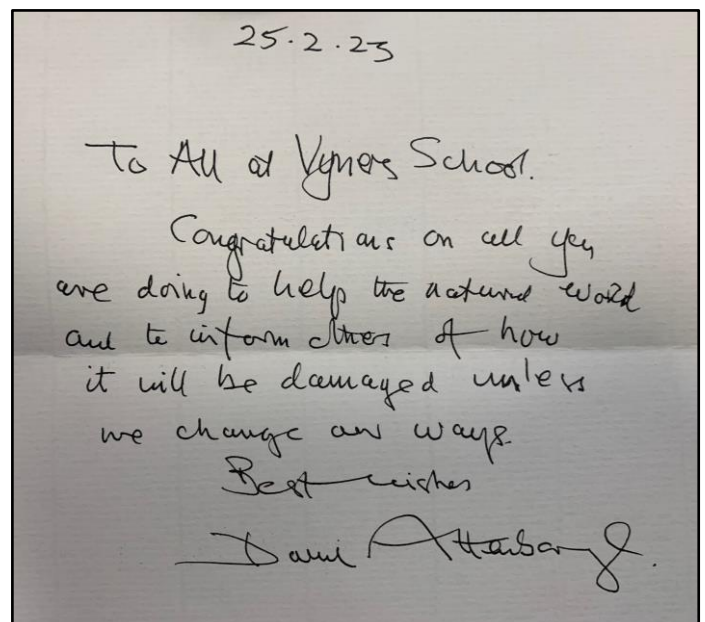 25.2.23
To All at Vyners School.
Congratulations on all you
are doing to help the natural world
and to inform others of how
it will be damaged unless
we change our ways.
Best wishes
David Attenborough.